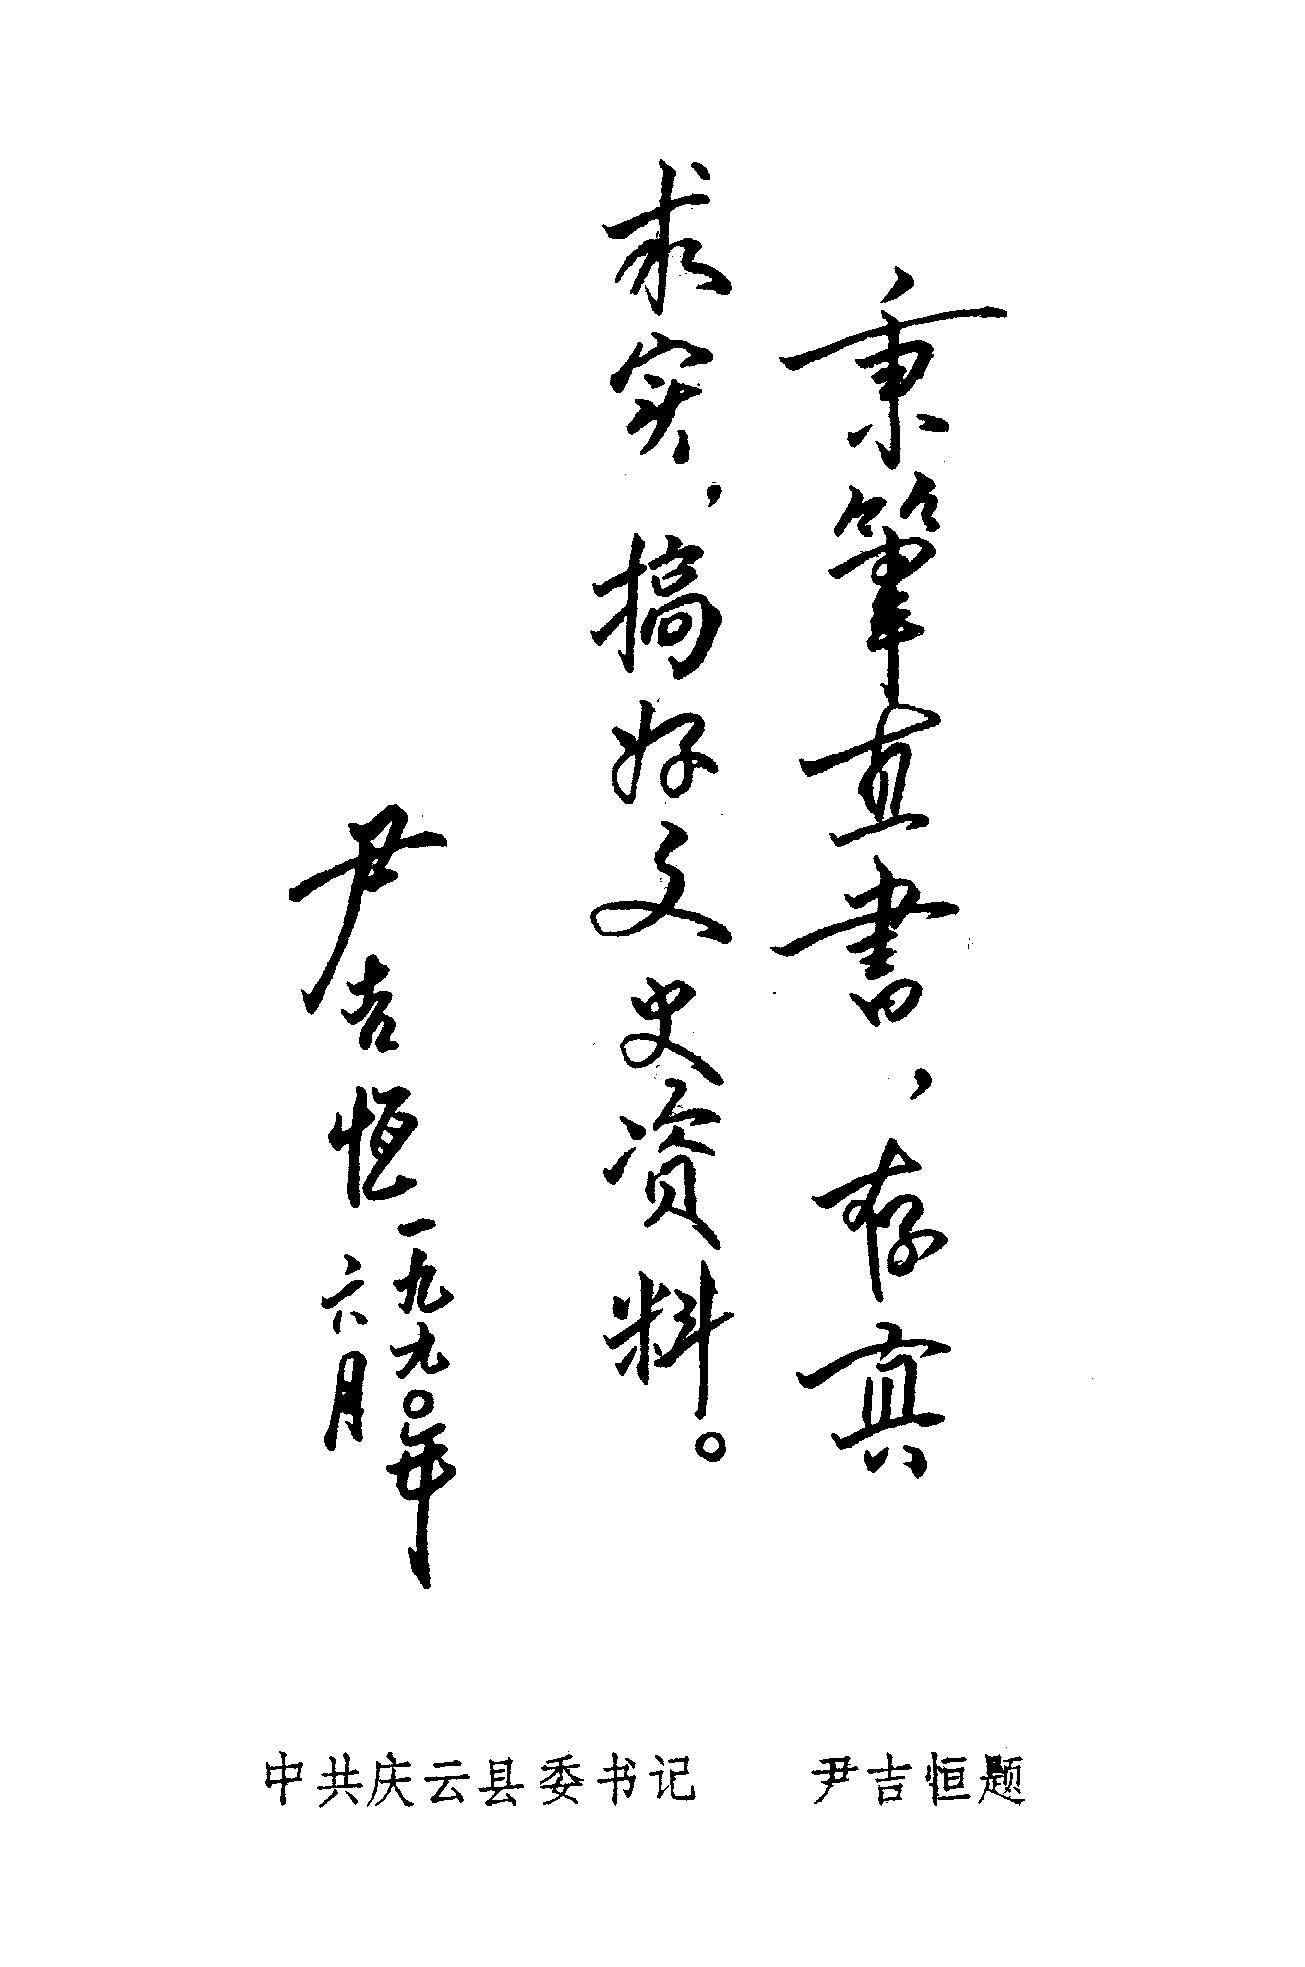 秉筆直書，存真
求实，搞好文史资料。
尹吉恒
一九九〇年
六月
中共庆云县委书记 尹吉恒题